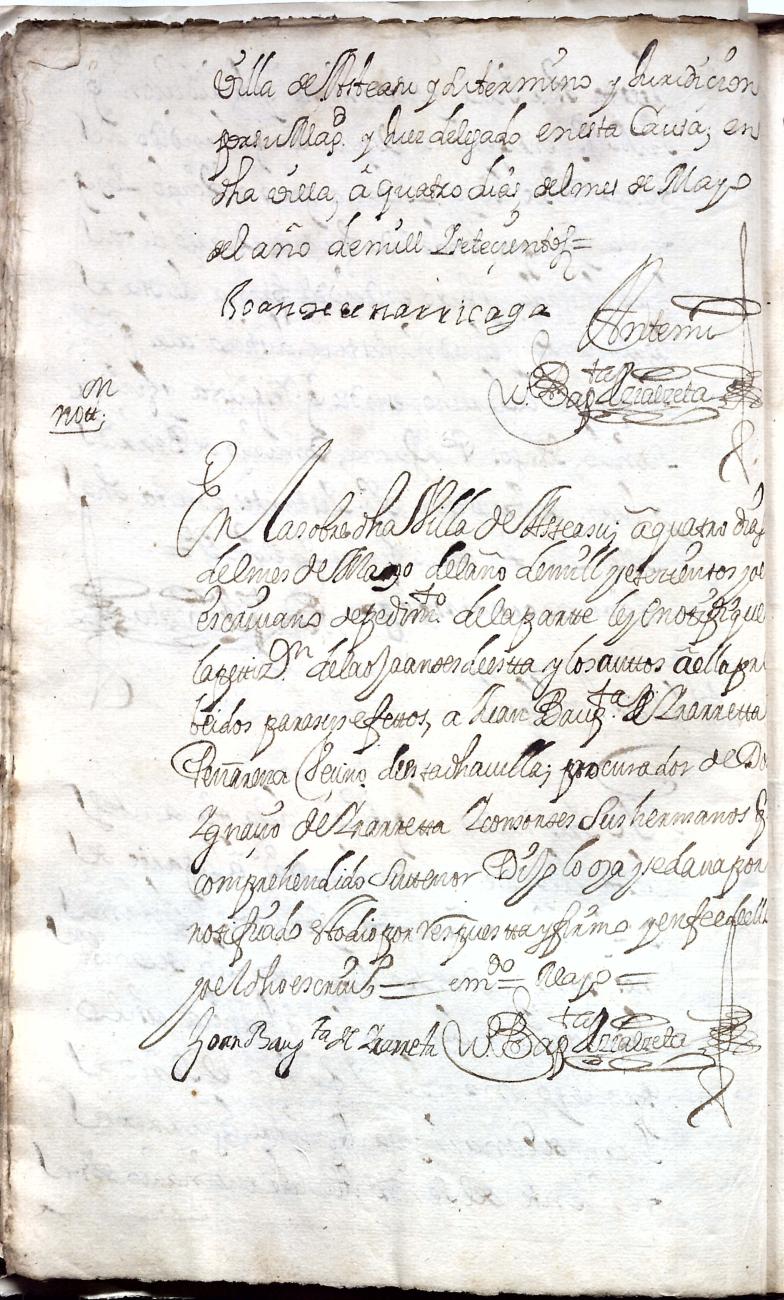 Villa de Asteasu y su termino y Juridicion
por su Magd. y Juez delegado en esta Causa, en
dha villa, â quatro dias del mes de Mayo
del año de mill Setecientos =
Joan de narriçaga
Antemi
Bapta
on
nott.
En la sobre dha Villa de Asteasu; â quatro dias
del mes de Mayo del año de mill setecientos yo el
escriuano de pedimto. de la parte ley e notifique
la petizon. de la oja antes de esta y los auttos â ella pro
beidos para sus efettos, a Juan Baupta. de Yrarretta
Peñarena Vecino de esta dha uilla; procurador de Don
Ygnaçio de Yrarretta Y consortes Sus hermanos
comprehendido Su tenor Dijo lo oja y se daua por
notificado esto dio por respuesta y firmo y en fee de ello
yo el dho escriuo = emdo = Mayo =
Joan Baupta de Yrarreta
Bapta